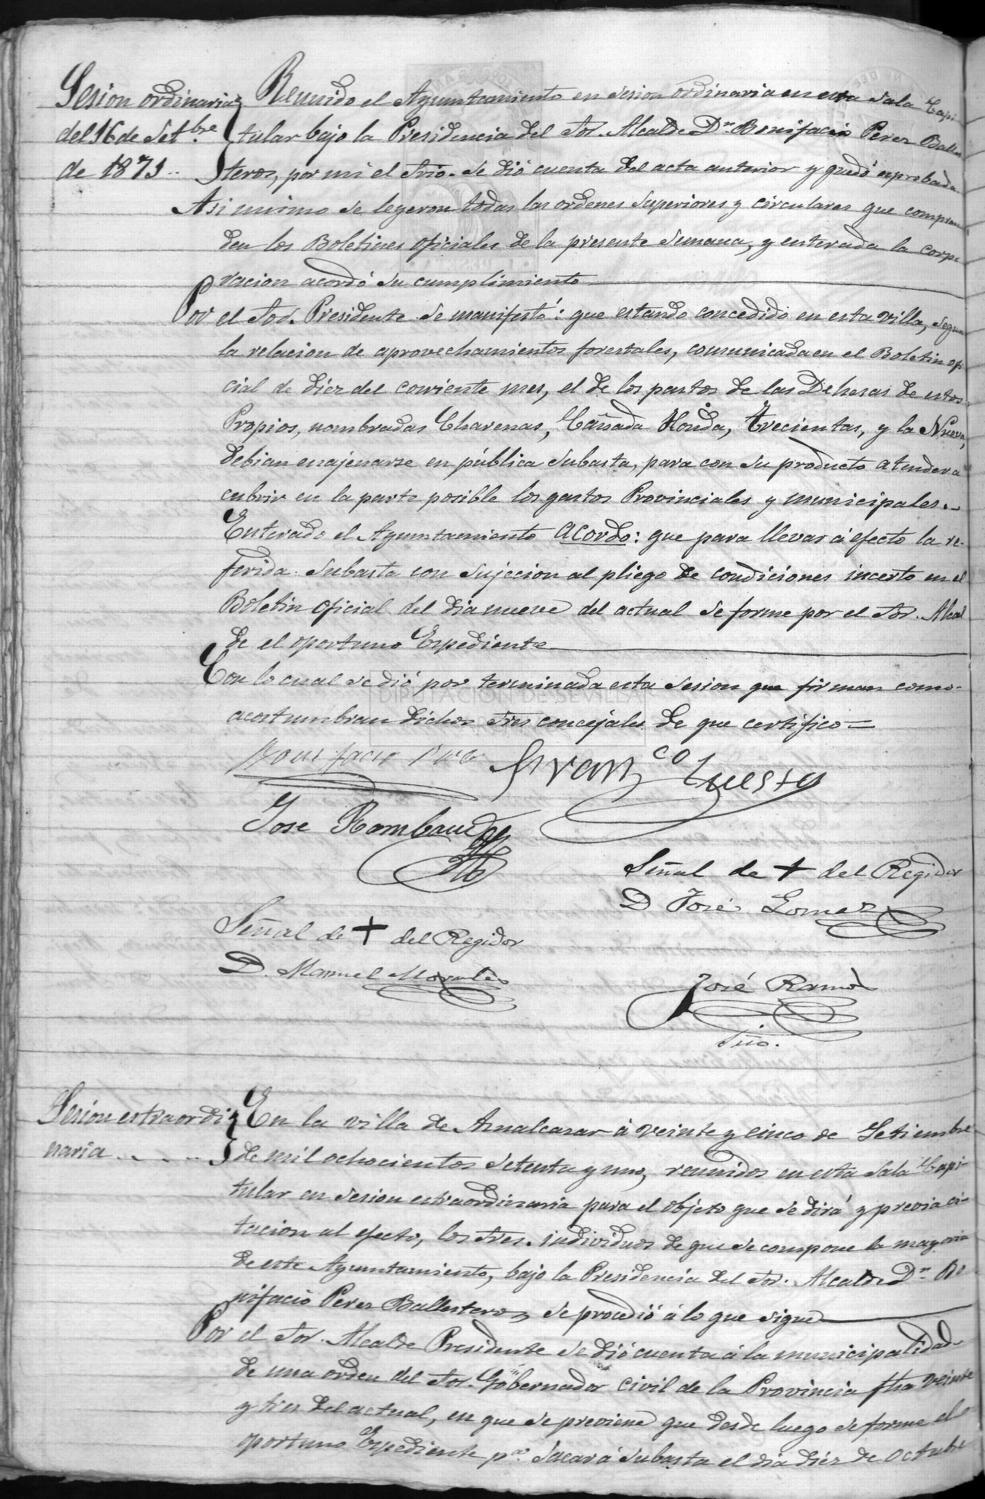 Sesion ordinaria
del 16 de Setbre.
de 1871..
Reunido el Ayuntamiento en sesion ordinaria en esta Sala Capi-
tular bajo la Presidencia del Sor. Alcalde Dn. Bonifacio Perez Balles
teros, por mi el Srio. se dió cuenta del acta anterior y quedó aprobada.
Asi mismo se leyeron todas las ordenes superiores y circulares que compren
den los Boletines oficiales de la presente semana, y enterada la corpo
racion acordó su cumplimiento
Por el Sor. Presidente se manifestó: que estando concedido en esta villa, segun
la relacion de aprovechamientos forestales, comunicada en el Boletin ofi
cial de diez del corriente mes, el de los pastos de las Dehesas de estos
Propios, nombradas Charenas, Cañada Honda, Trecientas, y la Nueva,
debian enajenarse en pública subasta, para con su producto atender a
cubrir en la parte posible los gastos Provinciales y municipales.
Enterado el Ayuntamiento Acordo: que para llevar á efecto la re-
ferida subasta con sujecion al pliego de condiciones incerto en el
Boletin oficial del dia nueve del actual se forme por el Sor. Alcal
de el oportuno Expediente
Con lo cual se dió por terminada esta sesion que firman como
acostumbran dichos Sres. concejales de que certifico=
Bonifacio Perez
Franco Cuesta
Jose Rombau
Señal de + del Regidor
D. José Gomez
Señal de + del Regidor
D. Manuel Morales
José Ramos
Srio.
Sesion extraordi
naria
En la villa de Aznalcazar á veinte y cinco de Setiembre
de mil ochocientos setenta y uno, reunidos en esta Sala Capi-
tular en sesion extraordinaria para el objeto que se dirá y previa ci-
tacion al efecto, los Sres. individuos de que se compone la mayoria
de este Ayuntamiento, bajo la Presidencia del Sor. Alcalde Dn. Bo
nifacio Perez Ballesteros, se procedió á lo que sigue
Por el Sor. Alcalde Presidente se dió cuenta á la municipalidad
de una orden del Sor. Gobernador civil de la Provincia fha veinte
y tres del actual, en que se previene que desde luego se forme el
oportuno Expediente pa. sacar á subasta el dia diez de Octubre
DIPUTACION DE SEVILLA